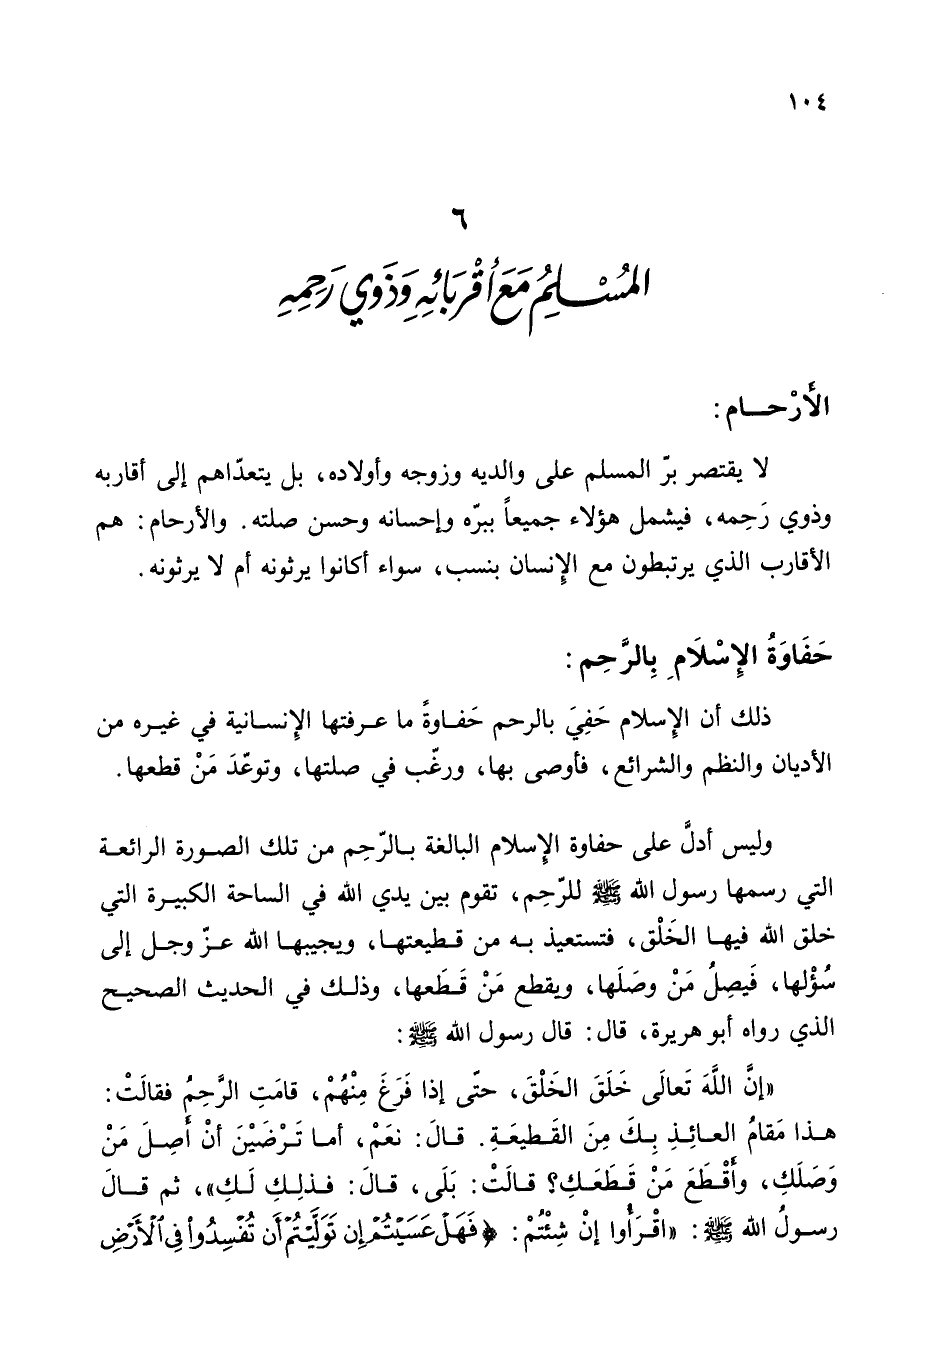 ١٠٤
٦
المُسْلِمُ مَعَ أَقْرِبَائِهِ وَذَوِي رَحِمِهِ
الأَرْحام:
لا يقتصر برّ المسلم على والديه وزوجه وأولاده، بل يتعدّاهم إلى أقاربه
وذوي رَحِمه، فيشمل هؤلاء جميعاً ببرّه وإحسانه وحسن صلته. والأرحام: هم
الأقارب الذي يرتبطون مع الإنسان بنسب، سواء أكانوا يرثونه أم لا يرثونه.
حَفَاوَةُ الإِسْلَامِ بِالرَّحِمِ:
ذلك أن الإسلام حَفِيَ بالرحم حَفاوةً ما عرفتها الإنسانية في غيره من
الأديان والنظم والشرائع، فأوصى بها، ورغّب في صلتها، وتوعّدَ مَنْ قطعها.
وليس أدلَّ على حفاوة الإسلام البالغة بالرّحِم من تلك الصورة الرائعة
التي رسمها رسول الله ﷺ للرّحِم، تقوم بين يدي الله في الساحة الكبيرة التي
خلق الله فيها الخَلْق، فتستعيذ به من قطيعتها، ويجيبها الله عزّ وجل إلى
سُؤْلها، فَيصِلُ مَنْ وصَلَها، ويقطع مَنْ قَطَعها، وذلك في الحديث الصحيح
الذي رواه أبو هريرة، قال: قال رسول الله ﷺ:
«إنَّ اللَّهَ تَعالَى خَلَقَ الخَلْقَ، حتّى إذا فَرَغَ مِنْهُمْ، قامَتِ الرَّحِمُ فقالَتْ:
هذا مَقامُ العائِذِ بِكَ مِنَ القَطيعَةِ. قالَ: نعَمْ، أما تَرْضَيْنَ أنْ أَصِلَ مَنْ
وَصَلَكِ، وأَقْطَعَ مَنْ قَطَعَكِ؟ قالَتْ: بَلَى، قالَ: فذلِكِ لَكِ»، ثم قالَ
رسولُ الله ﷺ: «اقْرَأُوا إنْ شِئْتُمْ: ﴿فَهَلْ عَسَيْتُمْ إِن تَوَلَّيْتُمْ أَن تُفْسِدُواْ فِى ٱلْأَرْضِ